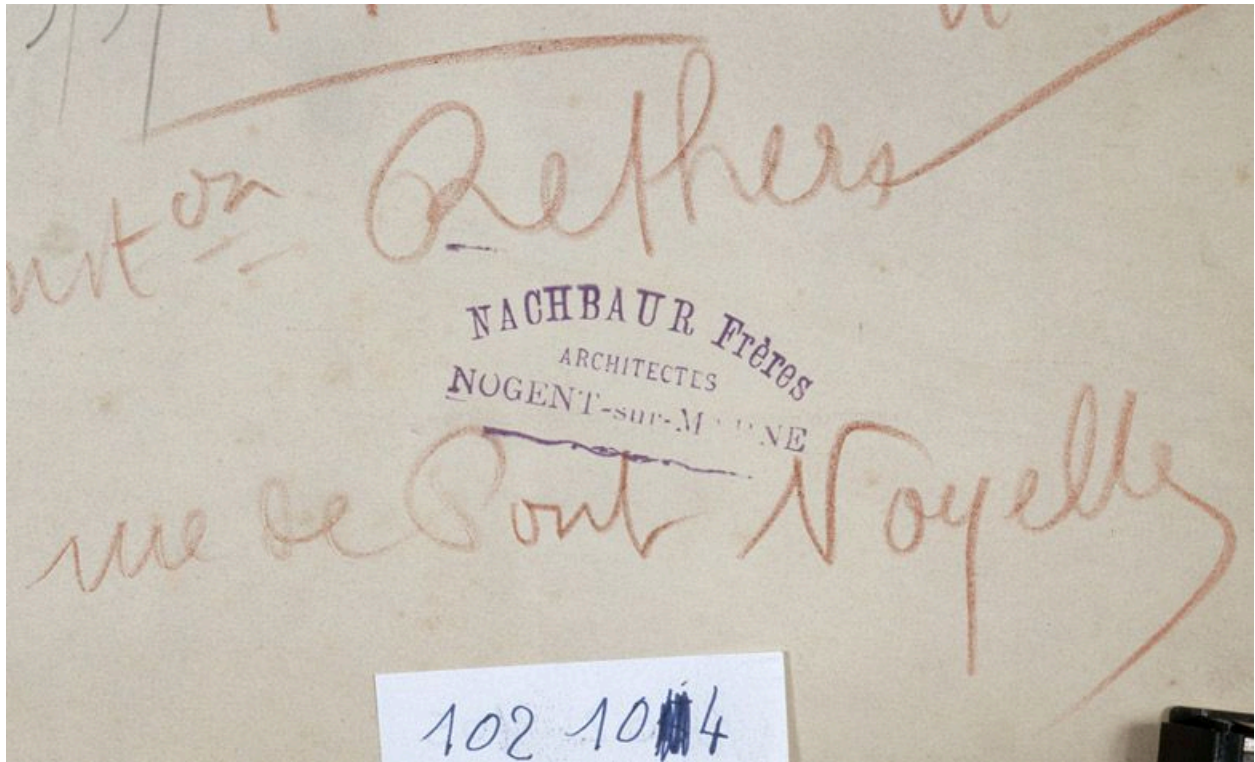 on Rethers
NACHBAUR Frères
ARCHITECTES
NOGENT-sur-M NE
rue de Pont Noyelle
102 10 4